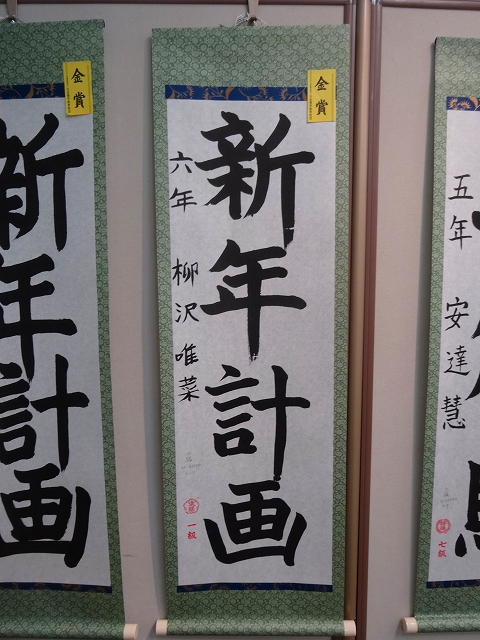 金賞
新年計画
金賞
新年計画
六年 柳沢唯菜
一級
五年 安達慧
七級